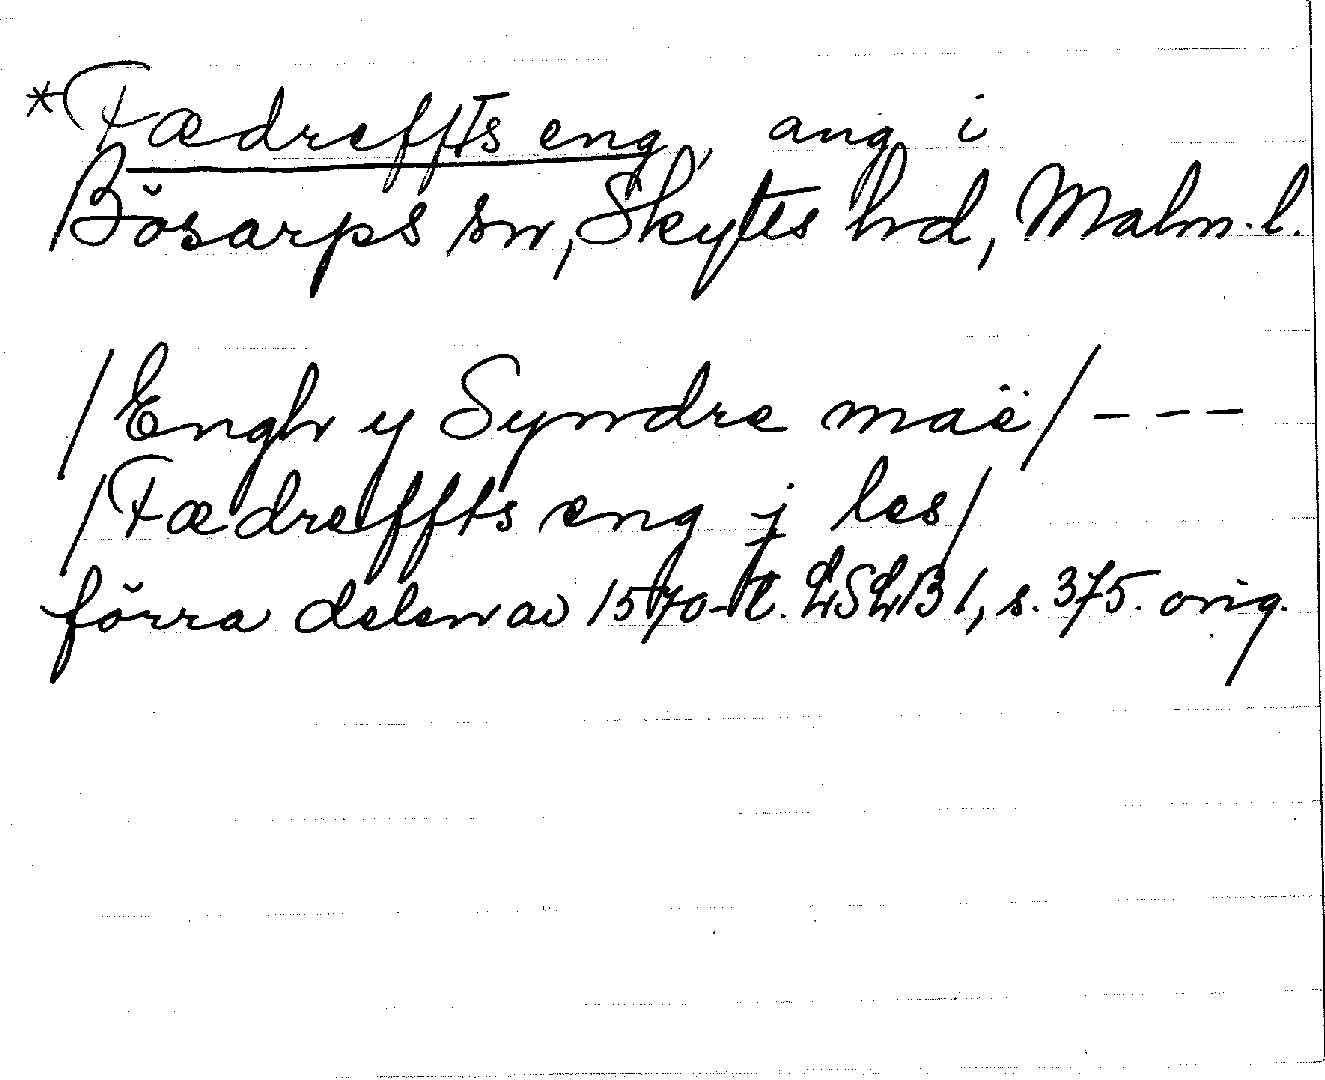 *Fædreffts eng, äng i
Bösarps sn, Skytts hd, Malm. l.
/Engh y Syndre maë/ - - -
/Fædreffts eng j les/
förra delen av 1570-t. LSLB 1, s. 375. orig.